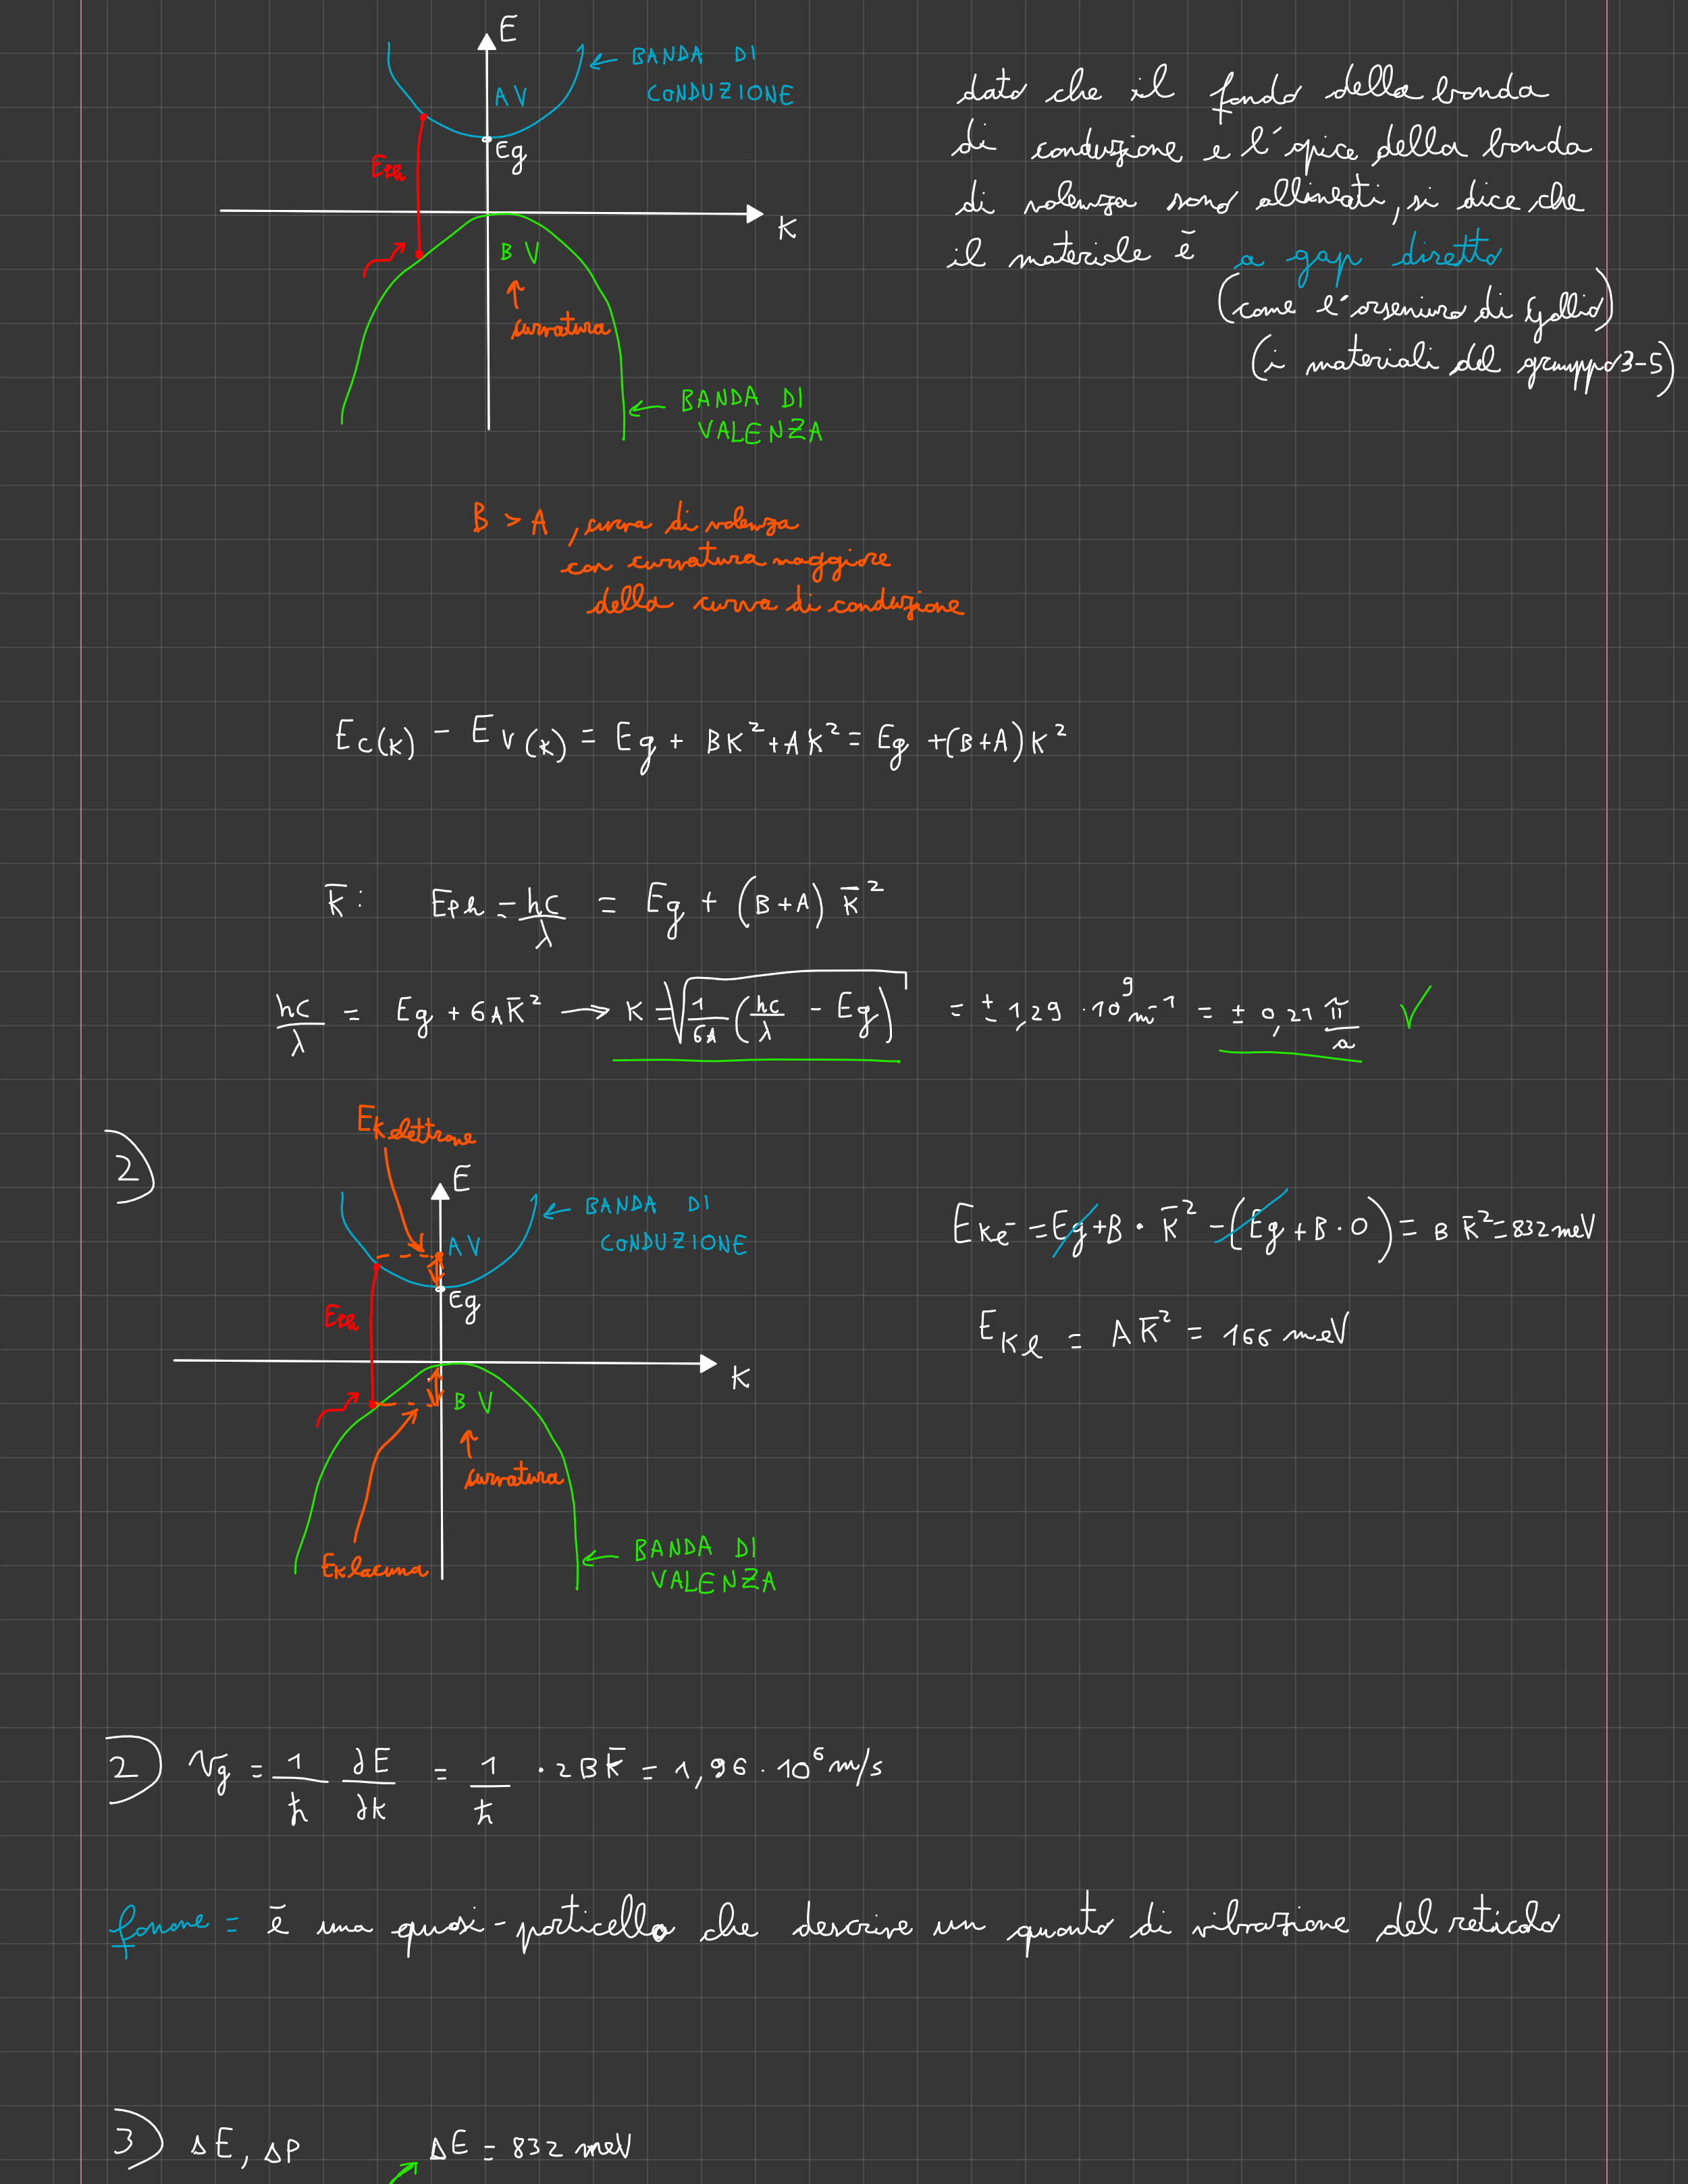 E
BANDA DI
CONDUZIONE
AV
Eg
Eph
K
BV
curvatura
BANDA DI
VALENZA
dato che il fondo della banda
di conduzione e l'apice della banda
di valenza sono allineati, si dice che
il materiale è a gap diretto
(come l'arseniuro di Gallio)
(i materiali del gruppo 3-5)
B > A, curva di valenza
con curvatura maggiore
della curva di conduzione
Ec(k) - Ev(k) = Eg + BK² + AK² = Eg + (B+A)K²
K̄: Eph = hc/λ = Eg + (B+A) K̄²
hc/λ = Eg + 6AK̄² → K = √(1/6A (hc/λ - Eg)) = ± 1,29 · 10⁹ m⁻¹ = ± 0,21 π/a ✓
2)
Ek elettrone
E
BANDA DI
CONDUZIONE
AV
Eg
Eph
K
BV
curvatura
BANDA DI
VALENZA
Ek lacuna
Eke⁻ = Eg + B · K̄² - (Eg + B · 0) = B K̄² = 832 meV
EKl = A K̄² = 166 meV
2) Vg = 1/ħ ∂E/∂K = 1/ħ · 2BK̄ = 1,96 · 10⁶ m/s
fonone = è una quasi-particella che descrive un quanto di vibrazione del reticolo
3) ΔE, ΔP ΔE = 832 meV